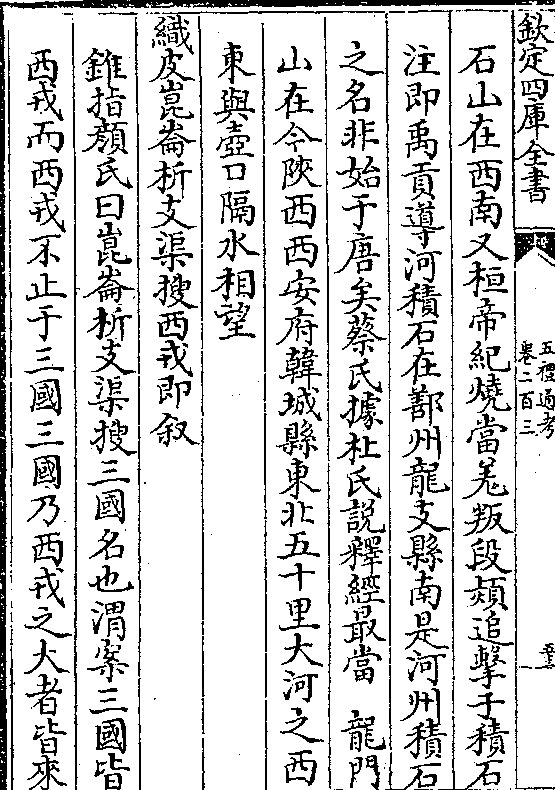 欽定四庫全書
五禮通考
卷二百三
石山在西南又桓帝紀燒當羌叛段熲追擊于積石
注即禹貢導河積石在鄯州龍支縣南是河州積石
之名非始于唐矣蔡氏據杜氏說釋經最當 龍門
山在今陜西西安府韓城縣東北五十里大河之西
東與壺口隔水相望
織皮崑崙析支渠搜西戎即叙
錐指顔氏曰崑崙析支渠搜三國名也渭案三國皆
西戎而西戎不止于三國三國乃西戎之大者皆來